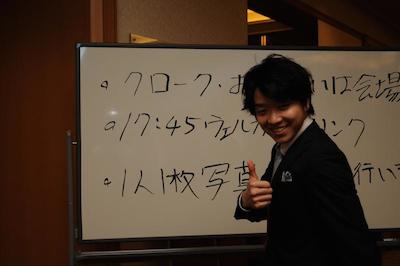 ・クローク・お は会場
・17:45ウェル リンク
・1人1枚写真 行い